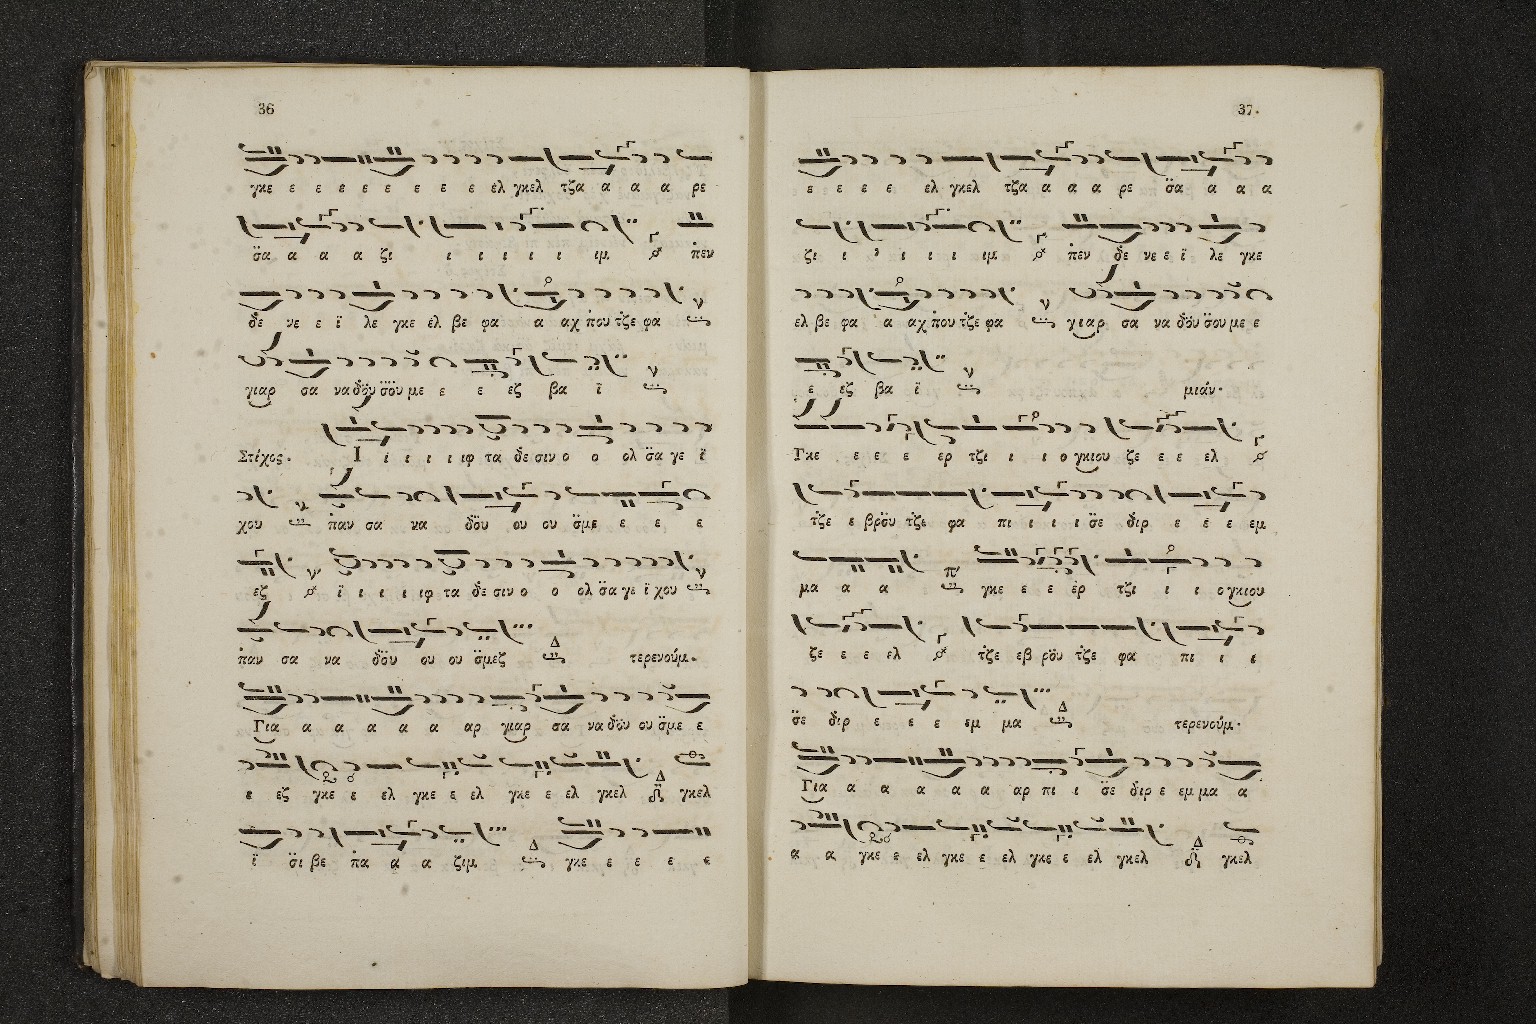 36
γκε ε ε ε ε ε ε ε ε ε ελ γκελ τζα α α α ρε
σ̈α α α α ζι ι ι ι ι ι ιμ π̇εν
δε νε ε ϊ λε γκε ελ βε φα α αχ π̇ου τ̇ζε φα
γιαρ σα να δ̈όυ σ̈όυ με ε ε εζ βα ϊ
Στίχος. Ι ι ι ι ι ιφ τα δε σιν ο ο ολ σ̈α γε ϊ
χου π̇αν σα να δ̈ου ου ου σ̈με ε ε ε
εζ ϊ ι ι ι ιφ τα δε σιν ο ο ολ σ̈α γε ϊ χου
π̇αν σα να δ̈ου ου ου σ̈μεζ τερενούμ.
Για α α α α α αρ γιαρ σα να δ̈ου ου σ̈με ε
ε εζ γκε ε ελ γκε ε ελ γκε ε ελ γκελ γκελ
ϊ σ̈ι βε π̇α α α ζιμ γκε ε ε ε ε
37.
ε ε ε ε ελ γκελ τζα α α α ρε σ̈α α α α
ζι ι ι ι ι ι ιμ π̇εν δε νε ε ϊ λε γκε
ελ βε φα α αχ π̇ου τ̇ζε φα γιαρ σα να δ̈όυ σ̈ου με ε
ε εζ βα ϊ μιάν.
Γκε ε ε ε ερ τζι ι ι ο γκιου ζε ε ε ελ
τ̇ζε ε βρ̈ου τ̇ζε φα πι ι ι ι σ̈ε διρ ε ε ε εμ
μα α α γκε ε ε ερ τζι ι ι ο γκιου
ζε ε ε ελ τ̇ζε εβ ρ̈ου τ̇ζε φα πι ι ι
σ̈ε διρ ε ε ε εμ μα τερενούμ.
Για α α α α α αρ πι ι σ̈ε διρ ε εμ μα α
α α γκε ε ελ γκε ε ελ γκε ε ελ γκελ γκελ